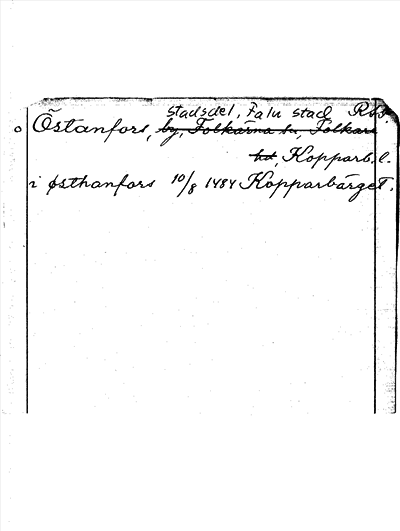 stadsdel, Falu stad Rss.
o Östanfors, by, Folkärna sn, Folkare
hd, Kopparb. l.
i østhanfors 10/8 1484 Kopparbärget.